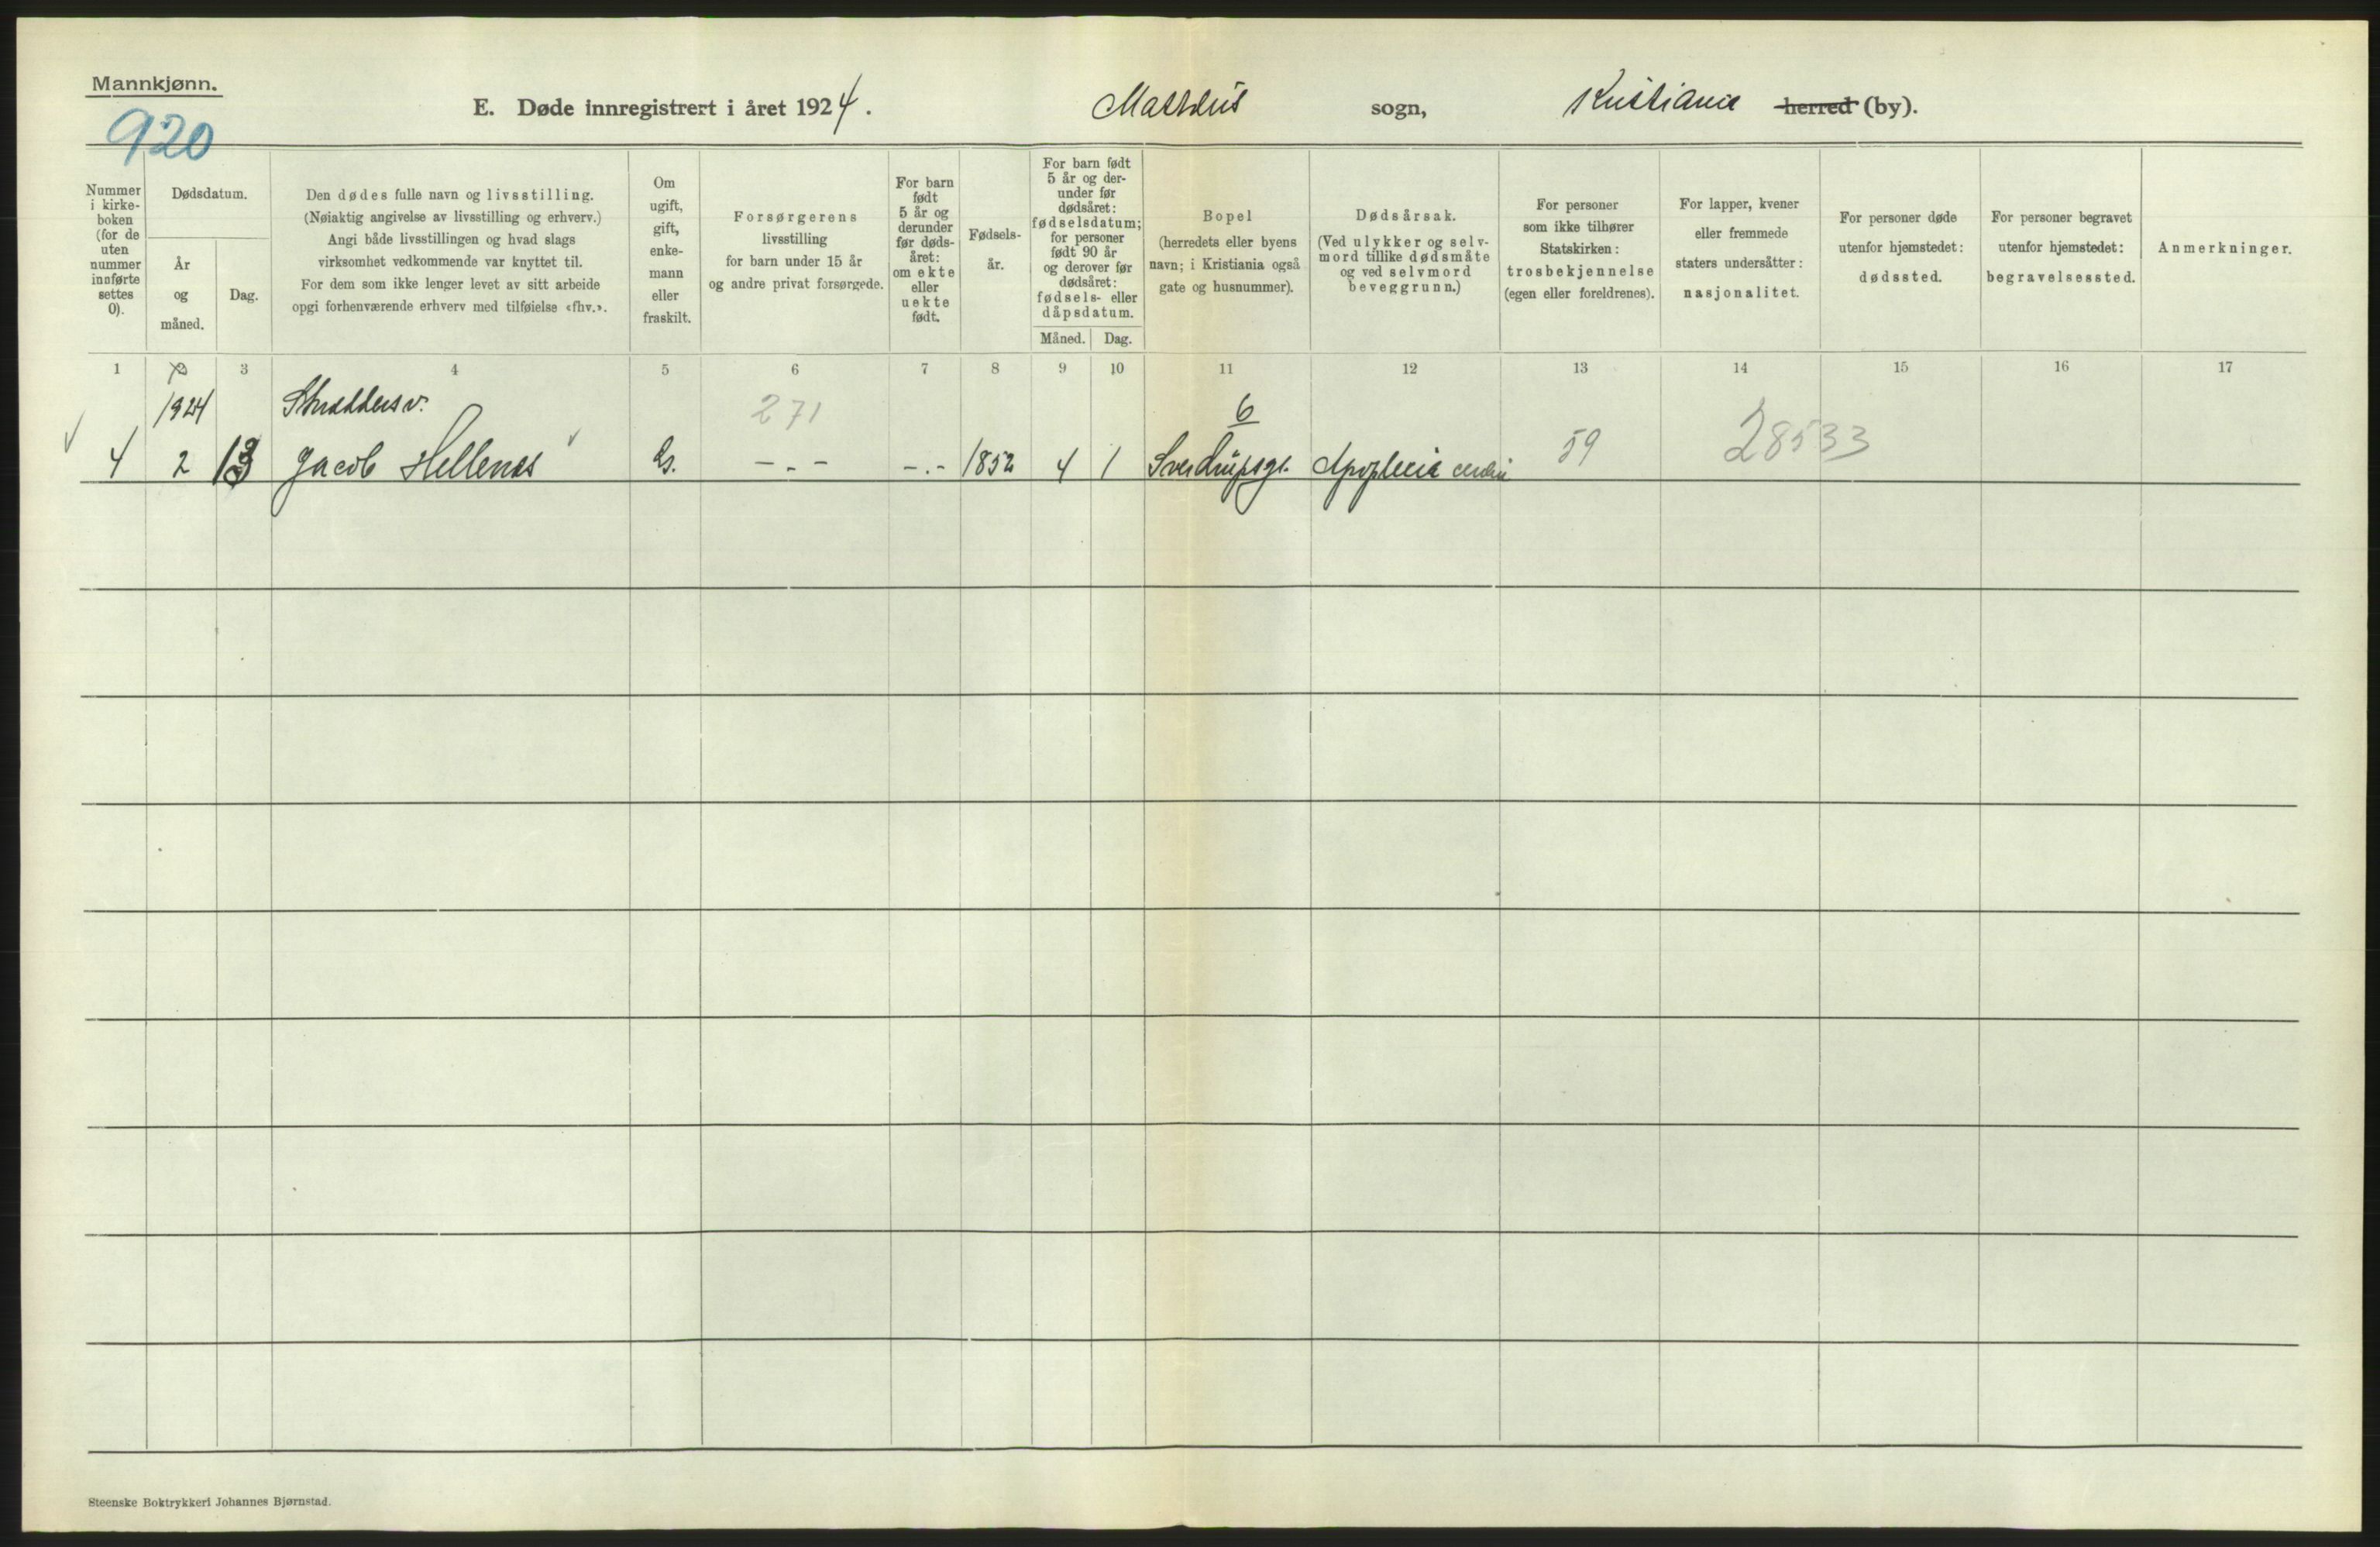 Mannkjønn.
920
E. Døde innregistrert i året 1924. Matteus sogn, Kristiania herred (by).
Nummer
i kirke-
boken
(for de
uten
nummer
innførte
settes
0).
Dødsdatum.
År
og
måned.
Dag.
Den dødes fulle navn og livsstilling.
(Nøiaktig angivelse av livsstilling og erhverv.)
Angi både livsstillingen og hvad slags
virksomhet vedkommende var knyttet til.
For dem som ikke lenger levet av sitt arbeide
opgi forhenværende erhverv med tilføielse «fhv.».
Om
ugift,
gift,
enke-
mann
eller
fraskilt.
Forsørgerens
livsstilling
for barn under 15 år
og andre privat forsørgede.
For barn
født
5 år og
derunder
før døds-
året:
om ekte
eller
uekte
født.
Fødsels-
år.
For barn født
5 år og der-
under før
dødsåret:
fødselsdatum;
for personer
født 90 år
og derover før
dødsåret:
fødsels- eller
dåpsdatum.
Måned.
Dag.
Bopel
(herredets eller byens
navn; i Kristiania også
gate og husnummer).
Dødsårsak.
(Ved ulykker og selv-
mord tillike dødsmåte
og ved selvmord
beveggrunn.)
For personer
som ikke tilhører
Statskirken:
trosbekjennelse
(egen eller foreldrenes).
For lapper, kvener
eller fremmede
staters undersåtter:
nasjonalitet.
For personer døde
utenfor hjemstedet:
dødssted.
For personer begravet
utenfor hjemstedet:
begravelsessted.
Anmerkninger.
1 3 4 5 6 7 8 9 10 11 12 13 14 15 16 17
1924 271 6
4 2 13 Jacob Hellenes G. - . - - . - 1852 4 1 Sverdrupsgt. Apoplexia 59 28533
Steenske Boktrykkeri Johannes Bjørnstad.